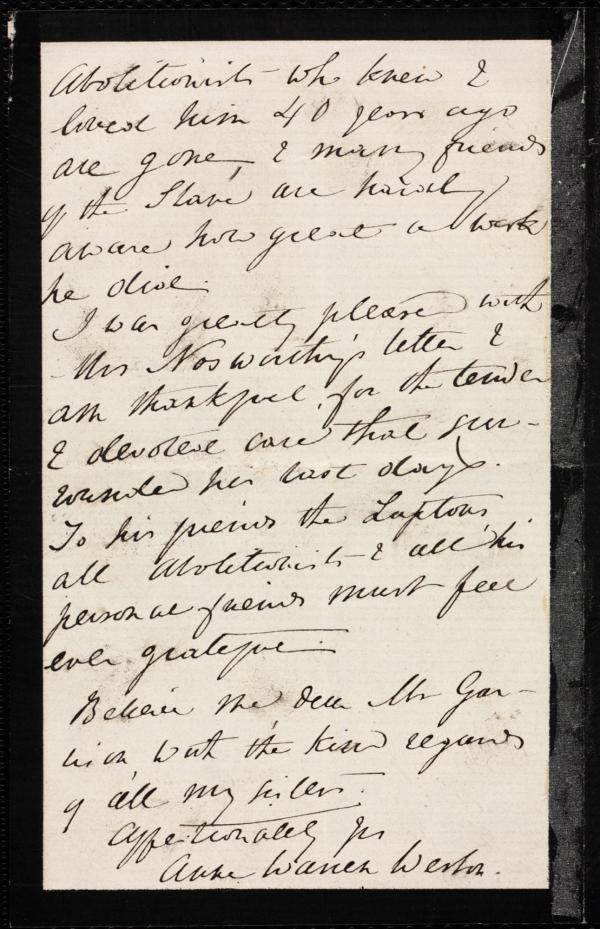 Abolitionists who knew &
loved him 40 years ago
are gone, & many friends
of the Slave are hardly
aware how great a work
he did.
I was greatly pleased with
Mrs Nosworthy's letter &
am thankful for the tender
& devoted care that sur-
rounded his last days.
To his friends the Luptons
all Abolitionists & all his
personal friends must feel
ever grateful.
Believe me dear Mr Gar-
rison with the kind regards
of all my sisters.
Affectionately yrs
Anne Warren Weston.